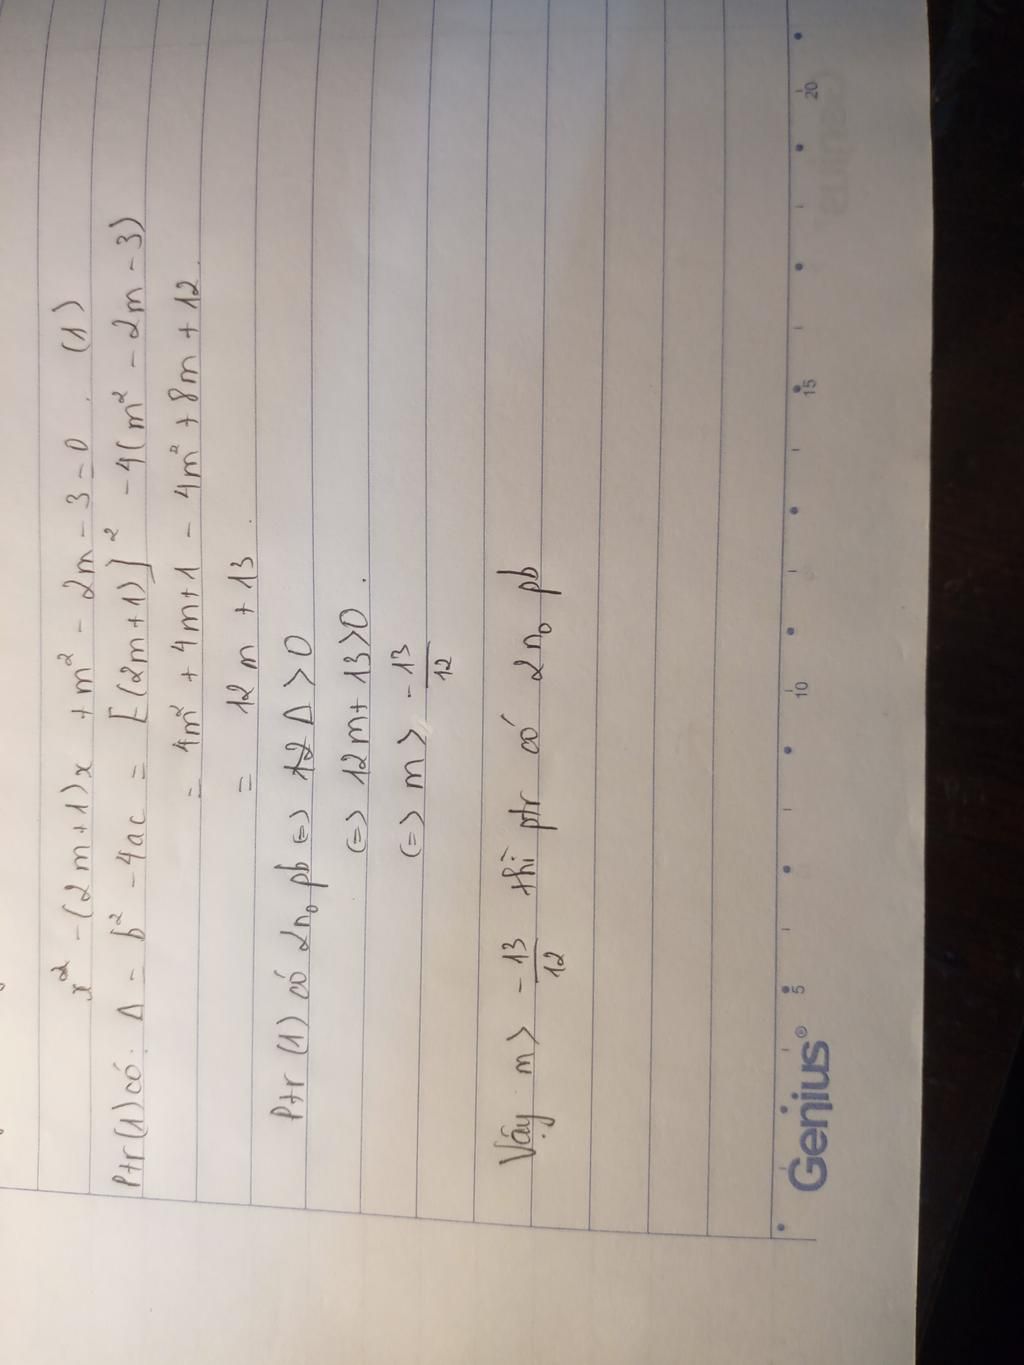 x² - (2m+1)x + m² - 2m - 3 = 0. (1)
Ptr (1) có: Δ = b² - 4ac = [(2m+1)]² - 4(m² - 2m - 3)
= 4m² + 4m + 1 - 4m² + 8m + 12.
= 12m + 13.
Ptr (1) có 2n₀ pb (=) Δ > 0
(=) 12m + 13 > 0.
(=) m > -13/12
Vậy m > -13/12 thì ptr có 2n₀ pb
Genius® 5 10 15 20